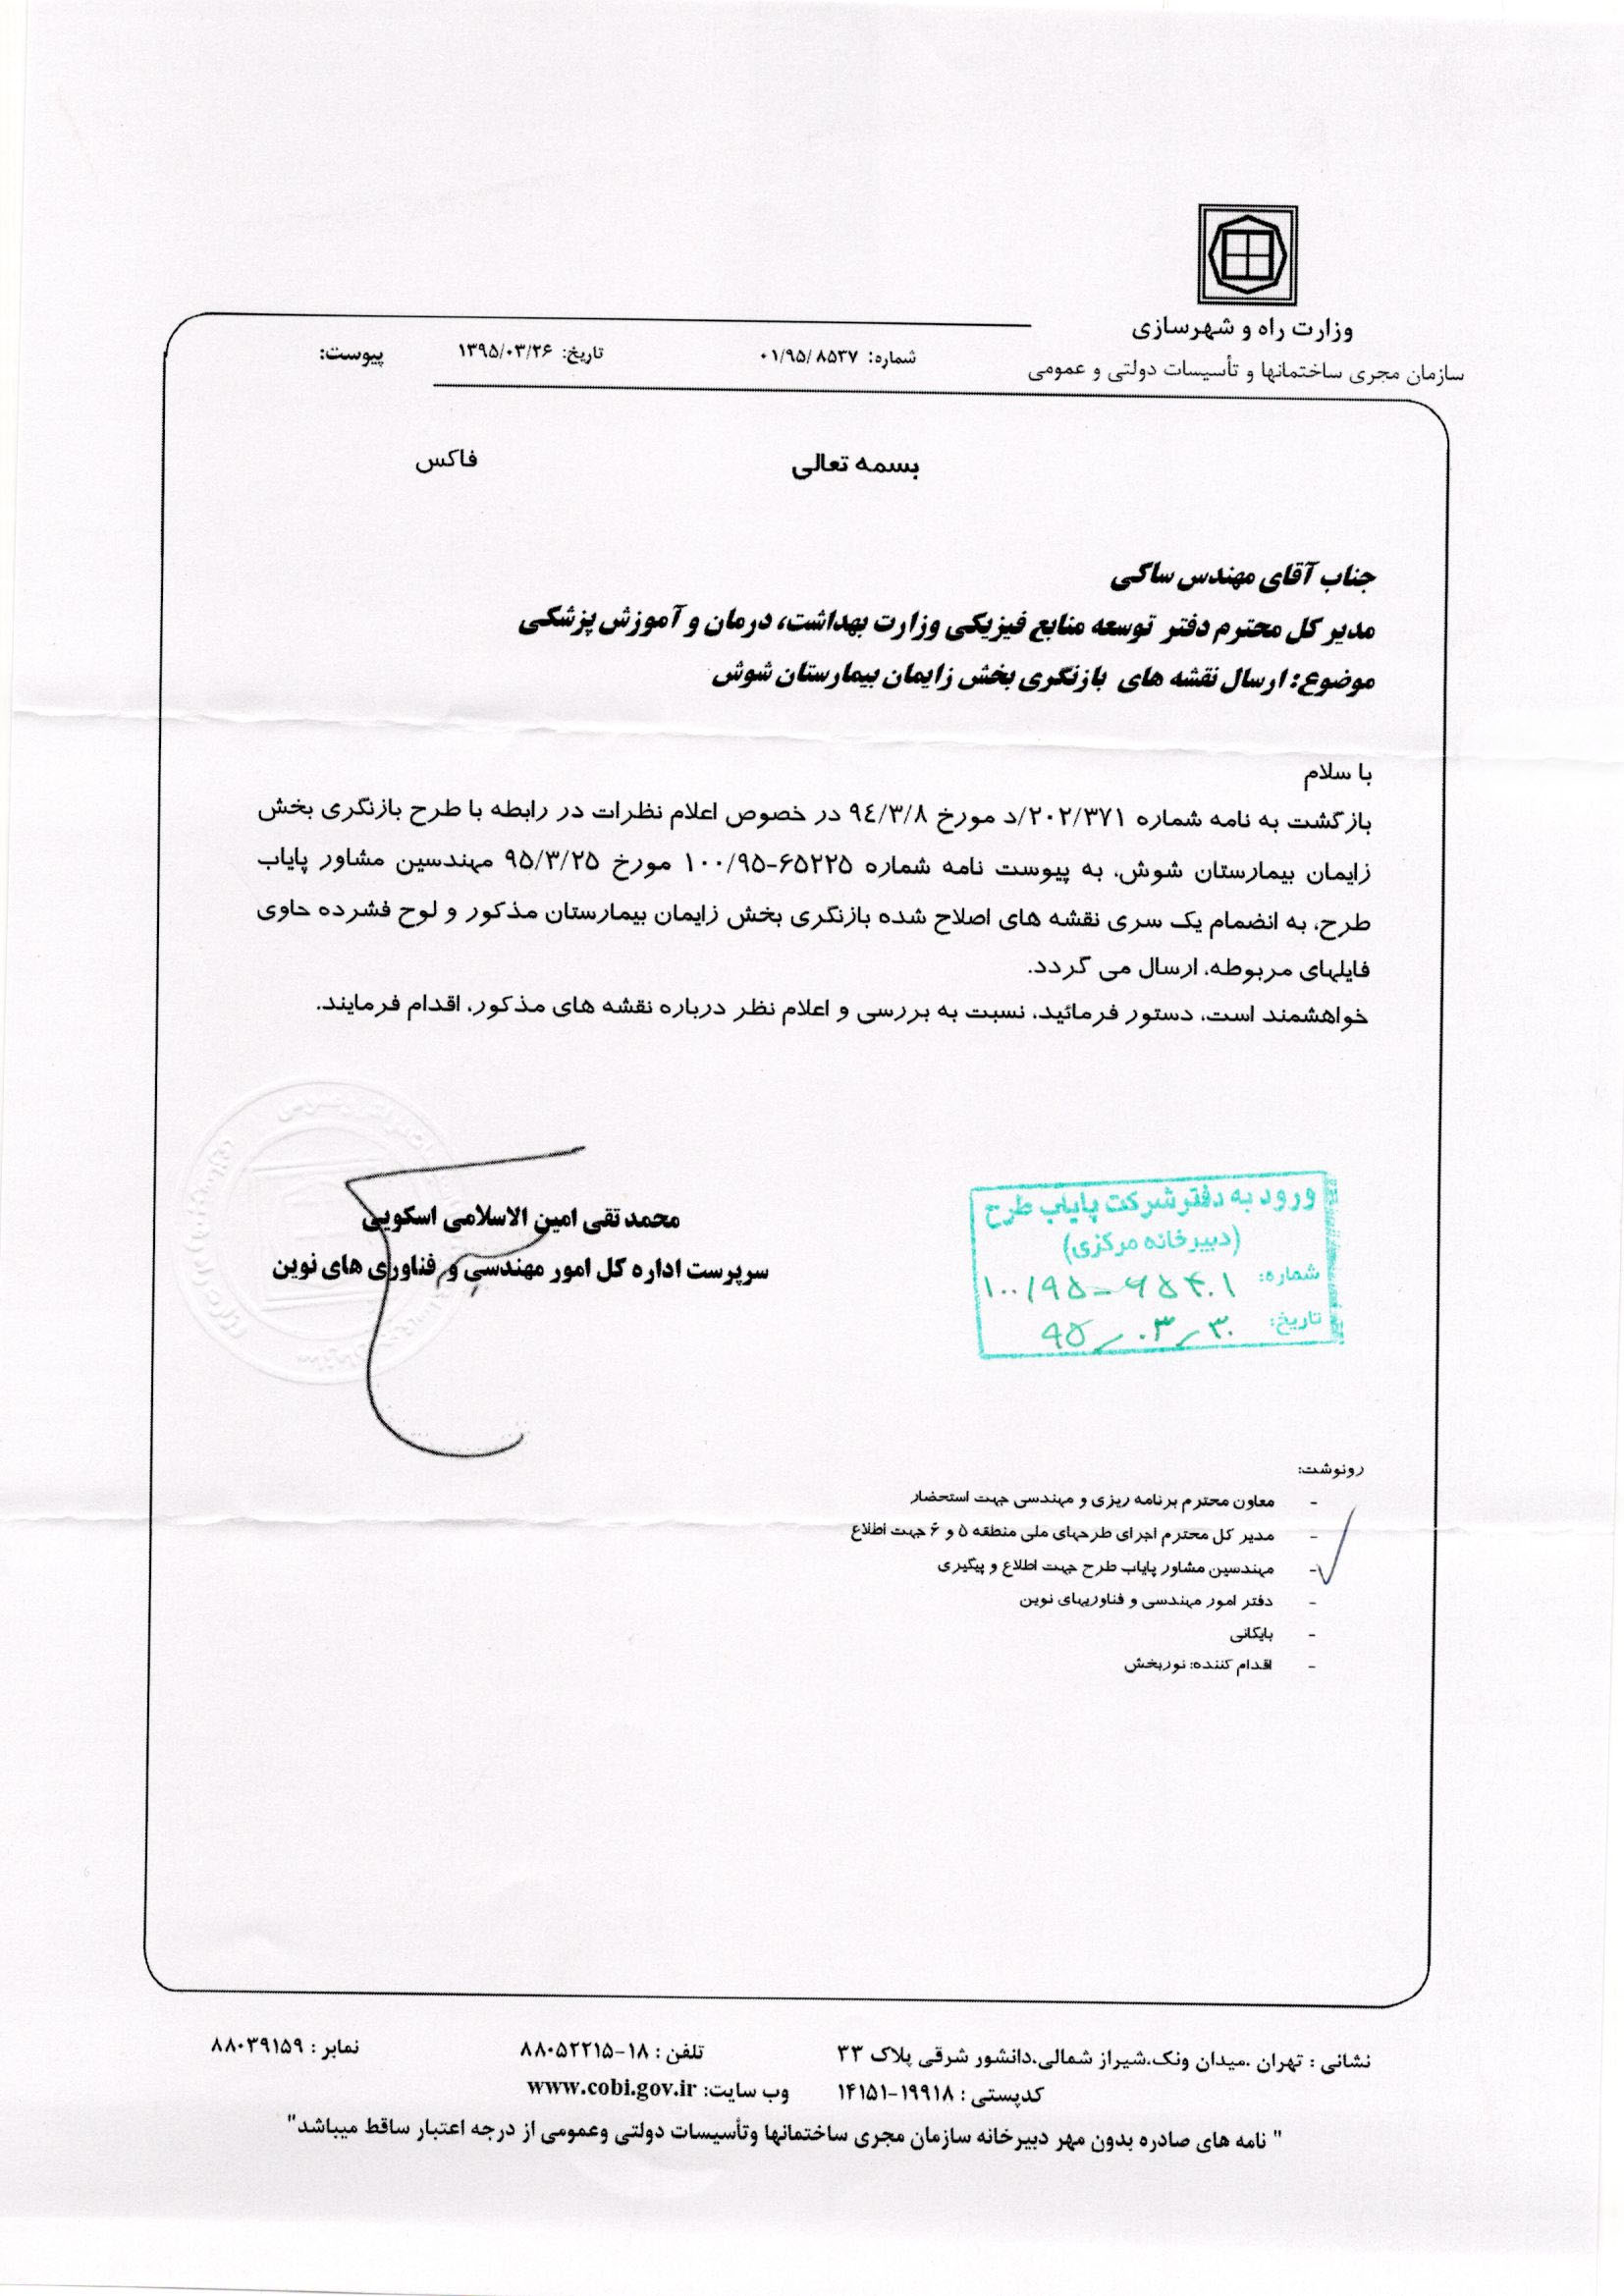 وزارت راه و شهرسازی
سازمان مجری ساختمانها و تأسیسات دولتی و عمومی
شماره: ۰۱/۹۵/۸۵۳۷
تاریخ: ۱۳۹۵/۰۳/۲۶
پیوست:
بسمه تعالی
فاکس
جناب آقای مهندس ساکی
مدیر کل محترم دفتر توسعه منابع فیزیکی وزارت بهداشت، درمان و آموزش پزشکی
موضوع: ارسال نقشه های بازنگری بخش زایمان بیمارستان شوش
با سلام
بازگشت به نامه شماره ۲۰۲/۳۷۱/د مورخ ۹٤/۳/۸ در خصوص اعلام نظرات در رابطه با طرح بازنگری بخش
زایمان بیمارستان شوش، به پیوست نامه شماره ۶۵۲۲۵-۱۰۰/۹۵ مورخ ۹۵/۳/۲۵ مهندسین مشاور پایاب
طرح، به انضمام یک سری نقشه های اصلاح شده بازنگری بخش زایمان بیمارستان مذکور و لوح فشرده حاوی
فایلهای مربوطه، ارسال می گردد.
خواهشمند است، دستور فرمائید، نسبت به بررسی و اعلام نظر درباره نقشه های مذکور، اقدام فرمایند.
محمد تقی امین الاسلامی اسکویی
سرپرست اداره کل امور مهندسی و فناوری های نوین
ورود به دفتر شرکت پایاب طرح
(دبیرخانه مرکزی)
شماره: ۱۰۰/۹۵-۶۵۴۰۱
تاریخ: ۹۵/۰۳/۳۰
رونوشت:
- معاون محترم برنامه ریزی و مهندسی جهت استحضار
- مدیر کل محترم اجرای طرحهای ملی منطقه ۵ و ۶ جهت اطلاع
- مهندسین مشاور پایاب طرح جهت اطلاع و پیگیری
- دفتر امور مهندسی و فناوریهای نوین
- بایگانی
- اقدام کننده: نوربخش
نشانی : تهران ،میدان ونک،شیراز شمالی،دانشور شرقی پلاک ۳۳
تلفن : ۱۸-۸۸۰۵۲۲۱۵
نمابر : ۸۸۰۳۹۱۵۹
کدپستی : ۱۹۹۱۸-۱۴۱۵۱
وب سایت: www.cobi.gov.ir
" نامه های صادره بدون مهر دبیرخانه سازمان مجری ساختمانها وتأسیسات دولتی وعمومی از درجه اعتبار ساقط میباشد"